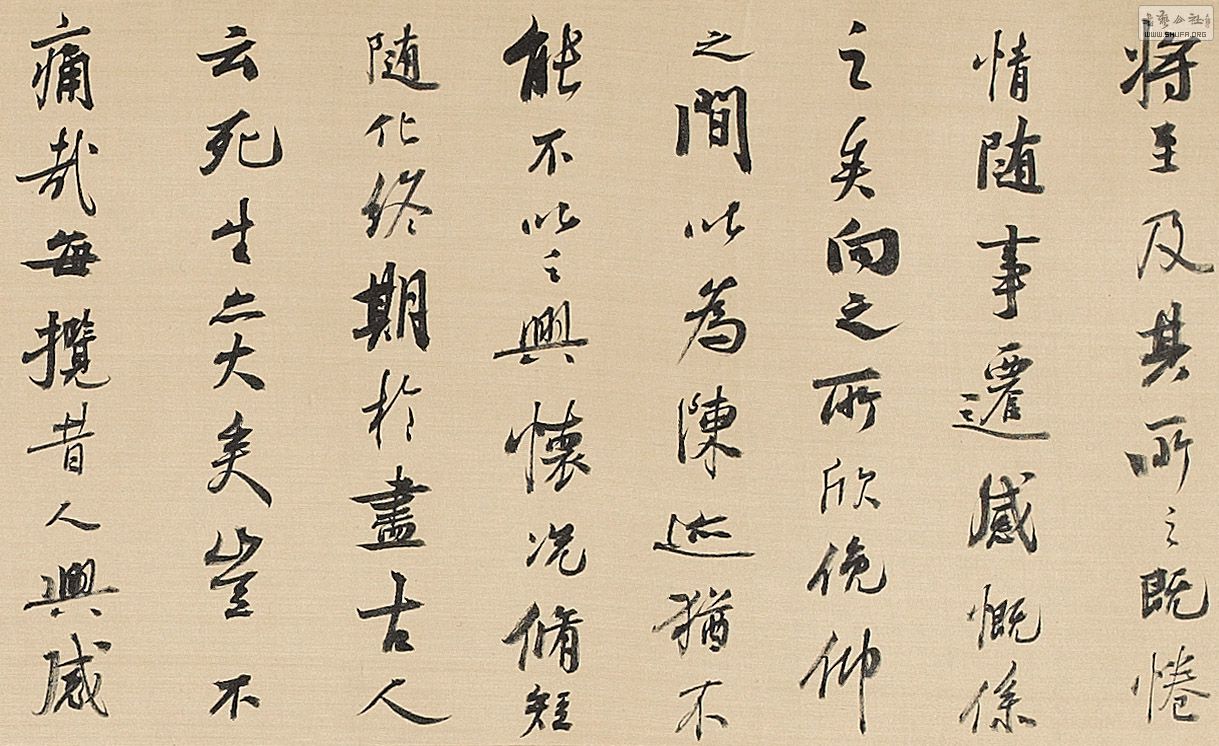 将至及其所之既惓
情随事遷感慨係
之矣向之所欣俛仰
之間以為陳迹猶不
能不以之興懷况脩短
随化終期於盡古人
云死生亦大矣豈不
痛哉每攬昔人興感
書藝公社
WWW.SHUFA.ORG